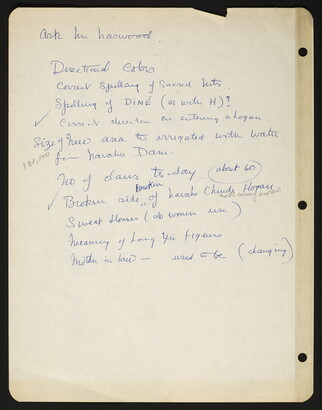 Ask Mr Haswood.
Directional Colors
Correct Spelling of Sacred Mts
Spelling of DINE (or with H)?
✓ Correct direction on entering a hogan.
Size of new area to irrigated with water
110,000
from Navaho Dam.
No of clans to-day. (about 60)
✓ Broken side, of Navaho Chinde Hogan
Sweat Houses (do women use)
Meaning of Long Yei figures
Mother in law — used to be (changing)